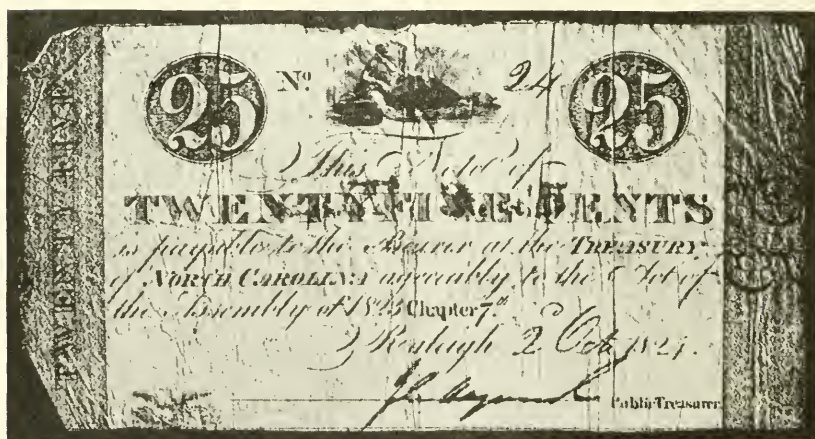 TWENTY FIVE
25 Nº 24 25
This Note of
TWENTY FIVE CENTS
is payable to the Bearer at the TREASURY
of NORTH CAROLINA agreeably to the Act of
the Assembly of 1823 Chapter 7th
Raleigh 2 Oct 1824.
Public Treasurer